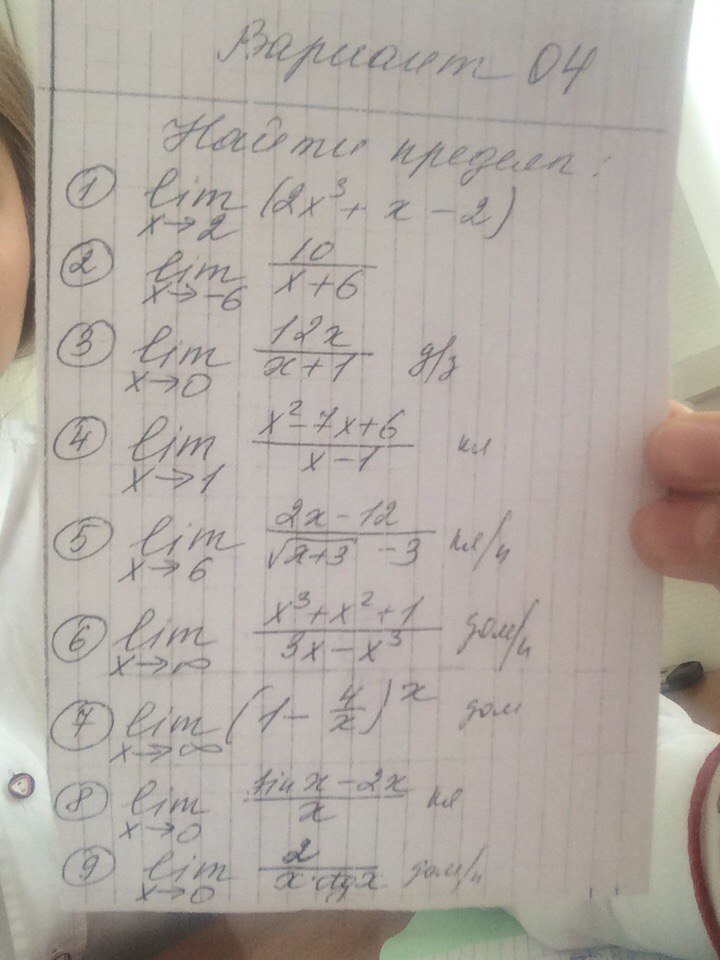 Вариант 04
Найти предел:
① lim x→2 (2x³ + x - 2)
② lim x→-6 10/(x+6)
③ lim x→0 12x/(x+1) д/з
④ lim x→1 (x²-7x+6)/(x-1) кл
⑤ lim x→6 (2x-12)/(√(x+3) -3) кл/н
⑥ lim x→∞ (x³+x²+1)/(3x-x³) дом/н
⑦ lim x→∞ (1- 4/x)^x дом
⑧ lim x→0 (sin x -2x)/x кл
⑨ lim x→0 2/(x·ctg x) дом/н